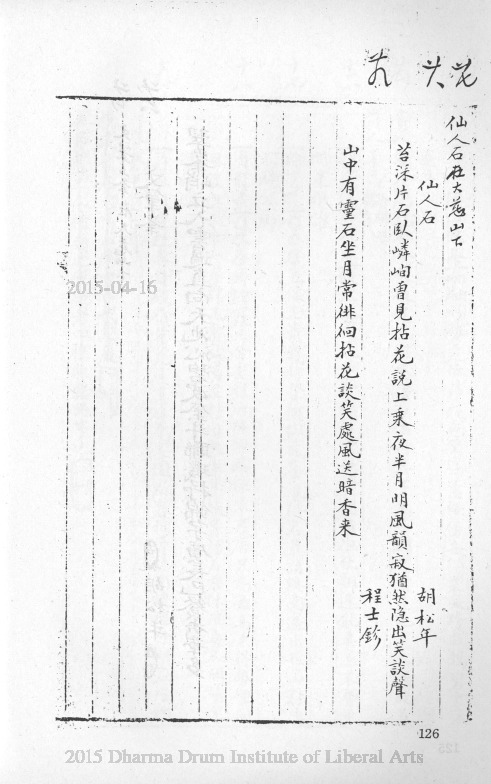 仙人石在大慈山下
仙人石
胡松年
苔深片石臥嶙峋曾見拈花說上乘夜半月明風韻寂猶然隐出笑談聲
程士鉁
山中有靈石坐月常徘徊拈花談笑處風送暗香来
2015-04-16
126
2015 Dharma Drum Institute of Liberal Arts